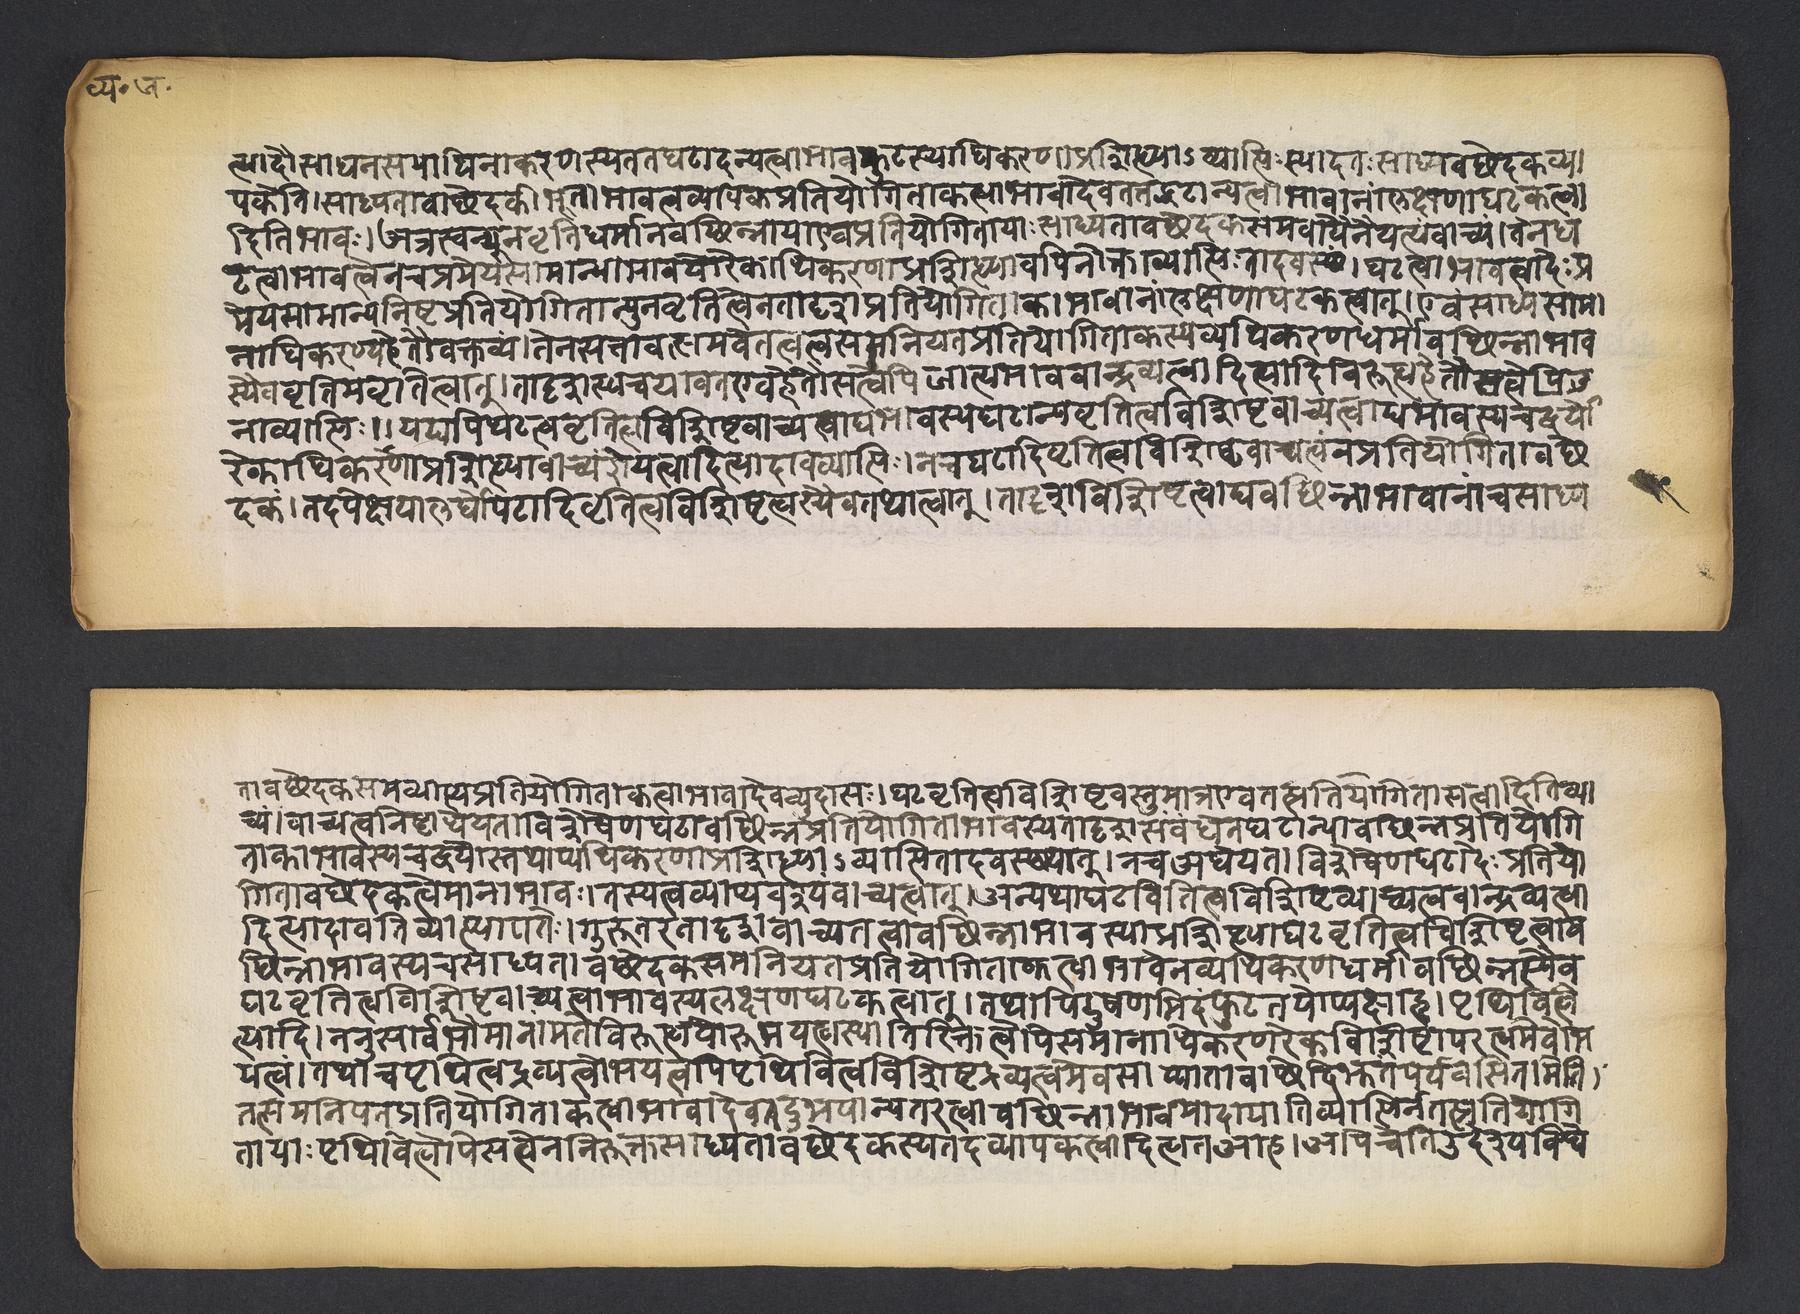 व्य॰ ज॰
त्यादौ।साधनसमाधिनाकरणस्यतत्तघटादन्यत्वाभावकूटस्याधिकरणाप्रशिध्याऽव्याप्तिःस्यादतःसाध्यावछेदकव्या
पकेति।साध्यतावाछेदकीभूता।भावत्वव्यापकप्रतियोगिताकत्वाभावादेवतत्तद्घटान्यत्वाभावानांलक्षणाघटकत्वा
दितिभावः।अत्रस्वन्यूनवृत्तिधर्मानवछिन्नायाएवप्रतियोगितायाःसाध्यतावछेदकसमवायेनैयत्यंवाच्यं।तेनघ
टत्वाभावत्वेनचप्रमेयसामान्याभावयोरेकाधिकरणाप्रशिध्यावपिनोक्ताव्याप्तिःतादवस्थ्यं।घटत्वाभावत्वादेःप्र
मेयसामान्यनिष्टप्रतियोगितान्युनवृत्तित्वेनतादृशप्रतियोगिताकाभावानांलक्षणाघटकत्वात्।एवंसाध्यसामा
नाधिकरण्यंहेतौवक्तव्यं।तेनसत्तावत्समवेतत्वत्वसमनियतप्रतियोगिताकस्यव्यधिकरणधर्मावछिन्नाभाव
स्यैववृत्तिमवृत्तित्वात्।तादृशस्यचयावतएवहेतौसत्वेपिजात्यभाववान्द्रव्यत्वादित्यादिविरुद्धहेतौ
नाव्याप्तिः॥यद्यपिघटत्ववृत्तित्वविशिष्टवाच्यत्वाद्यभावस्यघटान्यवृत्तित्वविशिष्टवाच्यत्वाद्यभावस्यचद्वयो
रेकाधिकरणाप्रशिध्यावाच्यंज्ञेयत्वादित्यादावव्याप्तिः।नचघटादिवृत्तित्वविशिष्टवाच्यत्वंनप्रतियोगितावछे
दकं।तदपेक्षयालघोर्घटादिवृत्तित्वविशिष्टत्वस्यैवतथात्वात्।तादृशविशिष्टत्वाद्यवछिन्नाभावानांचसाध्य
तावछेदकसमव्याप्यप्रतियोगिताकत्वाभावादेवव्युदासः।घटवृत्तित्वविशिष्टवस्तुमात्रएवतत्प्रतियोगितासत्वादितिवा
च्यं।वाच्यत्वनिष्टाधेयताविशेषेणघटावछिन्नप्रतियोगिताभावस्यतादृशसंबंधेनघटान्यावछिन्नप्रतियोगि
ताकाभावस्यचद्वयोस्तथाप्यधिकरणाप्रशिध्याऽव्याप्तितादवस्थ्यात्।नचआधेयताविशेषेणघटादेःप्रतियो
गितावछेदकत्वेमानाभावः।तस्यत्वव्याप्यवशेयवाच्यत्वात्।अन्यथाघटवितित्वविशिष्टव्याच्यत्ववान्द्रव्यत्वा
दित्यादावतिव्याप्त्यापातैः।गुरुतरतादृशवाच्यतत्वावछिन्नाभावस्याप्रशिध्याघटवृत्तित्वविशिष्टत्वाव
छिन्नाभावस्यचसाध्यतावछेदकसमनियतप्रतियोगिताकत्वाभावेनव्यधिकरणधर्मावछिन्नस्यैव
घटवृत्तित्वविशिष्टवाच्यत्वाभावस्यलक्षणघटकत्वात्।तथापिदूषणमिदंफुटतयोप्यपेक्षाह।पृथिवित्वे
त्यादि।ननुसार्वभौमानांमतेविरुद्धयोरुभयत्वस्यातिरिक्तत्वेपिसमानाधिकरणरेकविशिष्टापरत्वमेवोभ
यत्वं।तथाचपृथित्वद्रव्यत्वोभयत्वंपिपृथिवित्वविशिष्टद्रव्यत्वमेवसाध्यातावछिदिकतपर्यवसितमिति
तत्समनियतप्रतियोगिताकत्वाभावादेवतदुभयान्यतरत्वावछिन्नाभावमादायातिव्याप्तिर्नतत्प्रतियोगि
तायाःपृथिवित्वेपिसत्वेननिरुक्तसाध्यतावछेदकस्यतदव्यापकत्वादित्यतआह।अपिचेतिउद्देश्यविधे